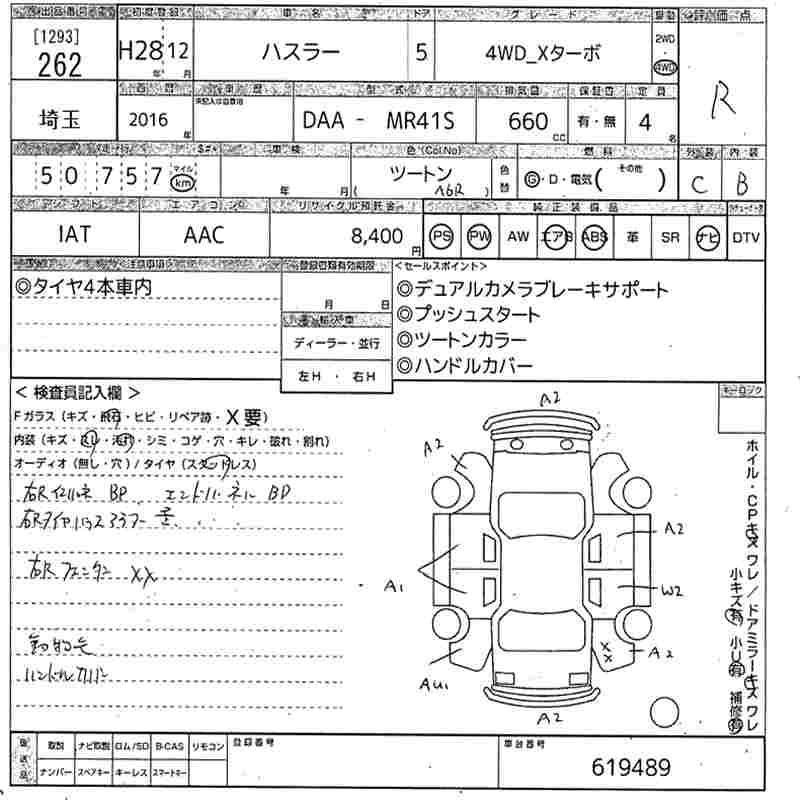 初度登録 車名 ドア グレード 評価点
[1293] 262 H28 12 年 月 ハスラー 5 4WD_Xターボ 2WD・4WD R
西暦 車歴 型式 排気量 保証書 定員
埼玉 2016 年 DAA - MR41S 660 CC 有・無 4 名
走行 車検 色(Col No) 燃料 外装 内装
50757 マイル km 年 月 ツートン ( A6R ) 色替 G・D・電気( その他 ) C B
シフト エアコン リサイクル預託金 純正装備品
IAT AAC 8,400 円 PS PW AW エアB ABS 革 SR ナビ DTV
注意事項 登録書類有効期限 <セールスポイント>
◎タイヤ4本車内 月 日 ◎デュアルカメラブレーキサポート
◎プッシュスタート
ディーラー・並行 ◎ツートンカラー
左H ・ 右H ◎ハンドルカバー
< 検査員記入欄 > キーロック
Fガラス (キズ・飛石・ヒビ・リペア跡・X要)
内装 (キズ・スレ・汚れ・シミ・コゲ・穴・キレ・破れ・割れ)
オーディオ (無し・穴) / タイヤ (スタッドレス)
BP エンドパネル BP
右Rフェンダー XX
ハンドルカバー
A2
A2
A2
A1
W2
A2
AU1
A2
X X
ホイル・CPキズワレ/ドアミラーキズワレ
小キズ有 小U有 補修有
取説 ナビ取説 ロム/SD B-CAS リモコン 登録番号 車台番号
ナンバー スペアキー キーレス スマートキー 619489